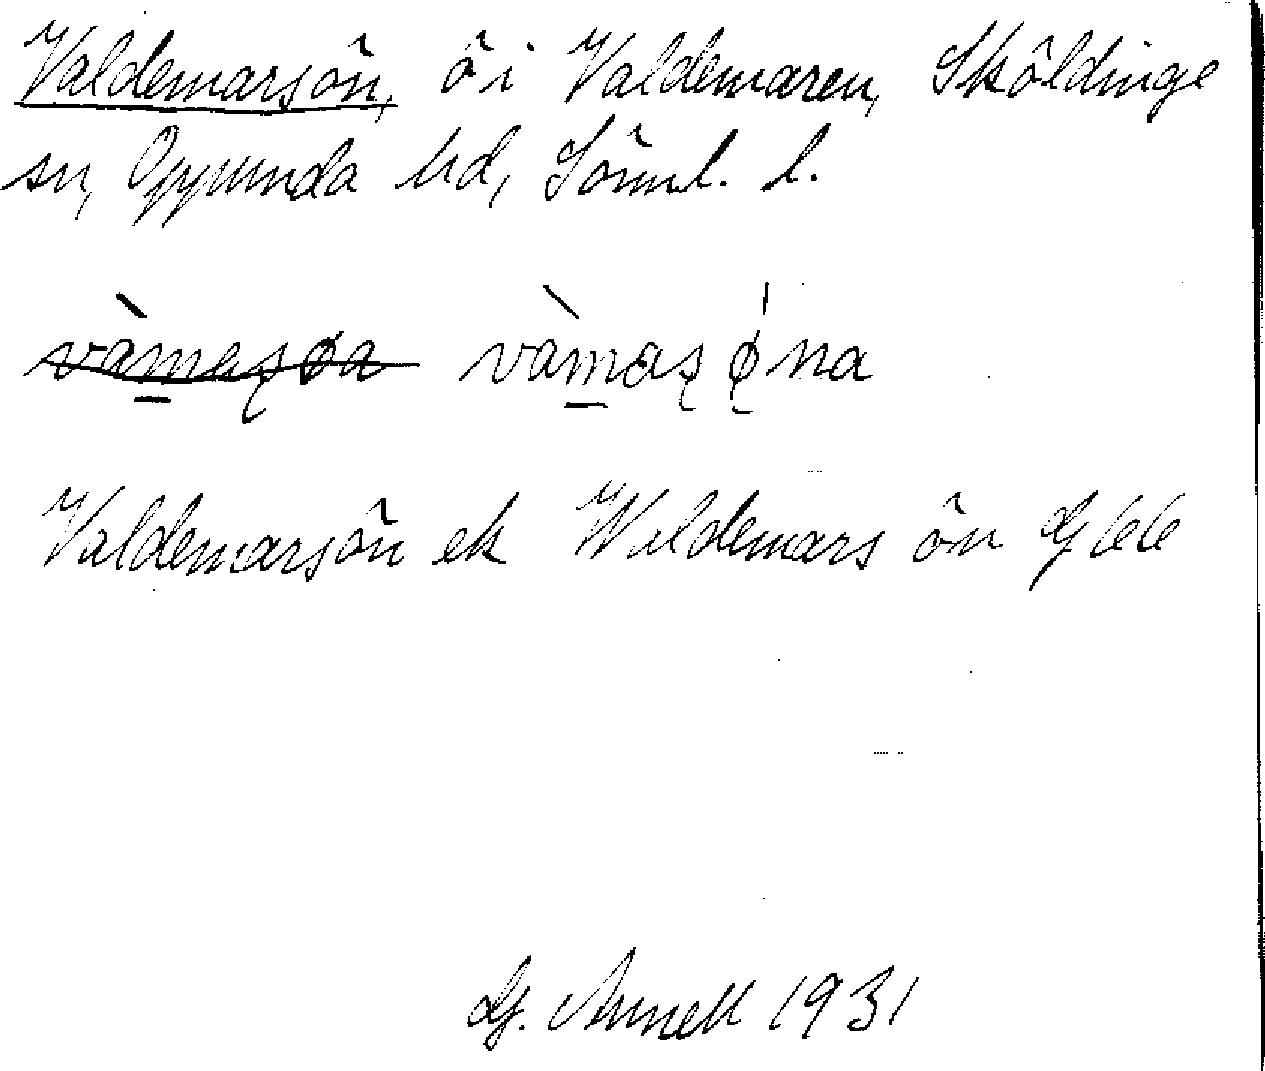 Valdemarsön, ö i Valdemaren, Sköldinge
sn, Oppunda hd, Sörml. l.
vàmaș ǿna
Valdemarsön ek Waldemars ön G 66
G. Annell 1931